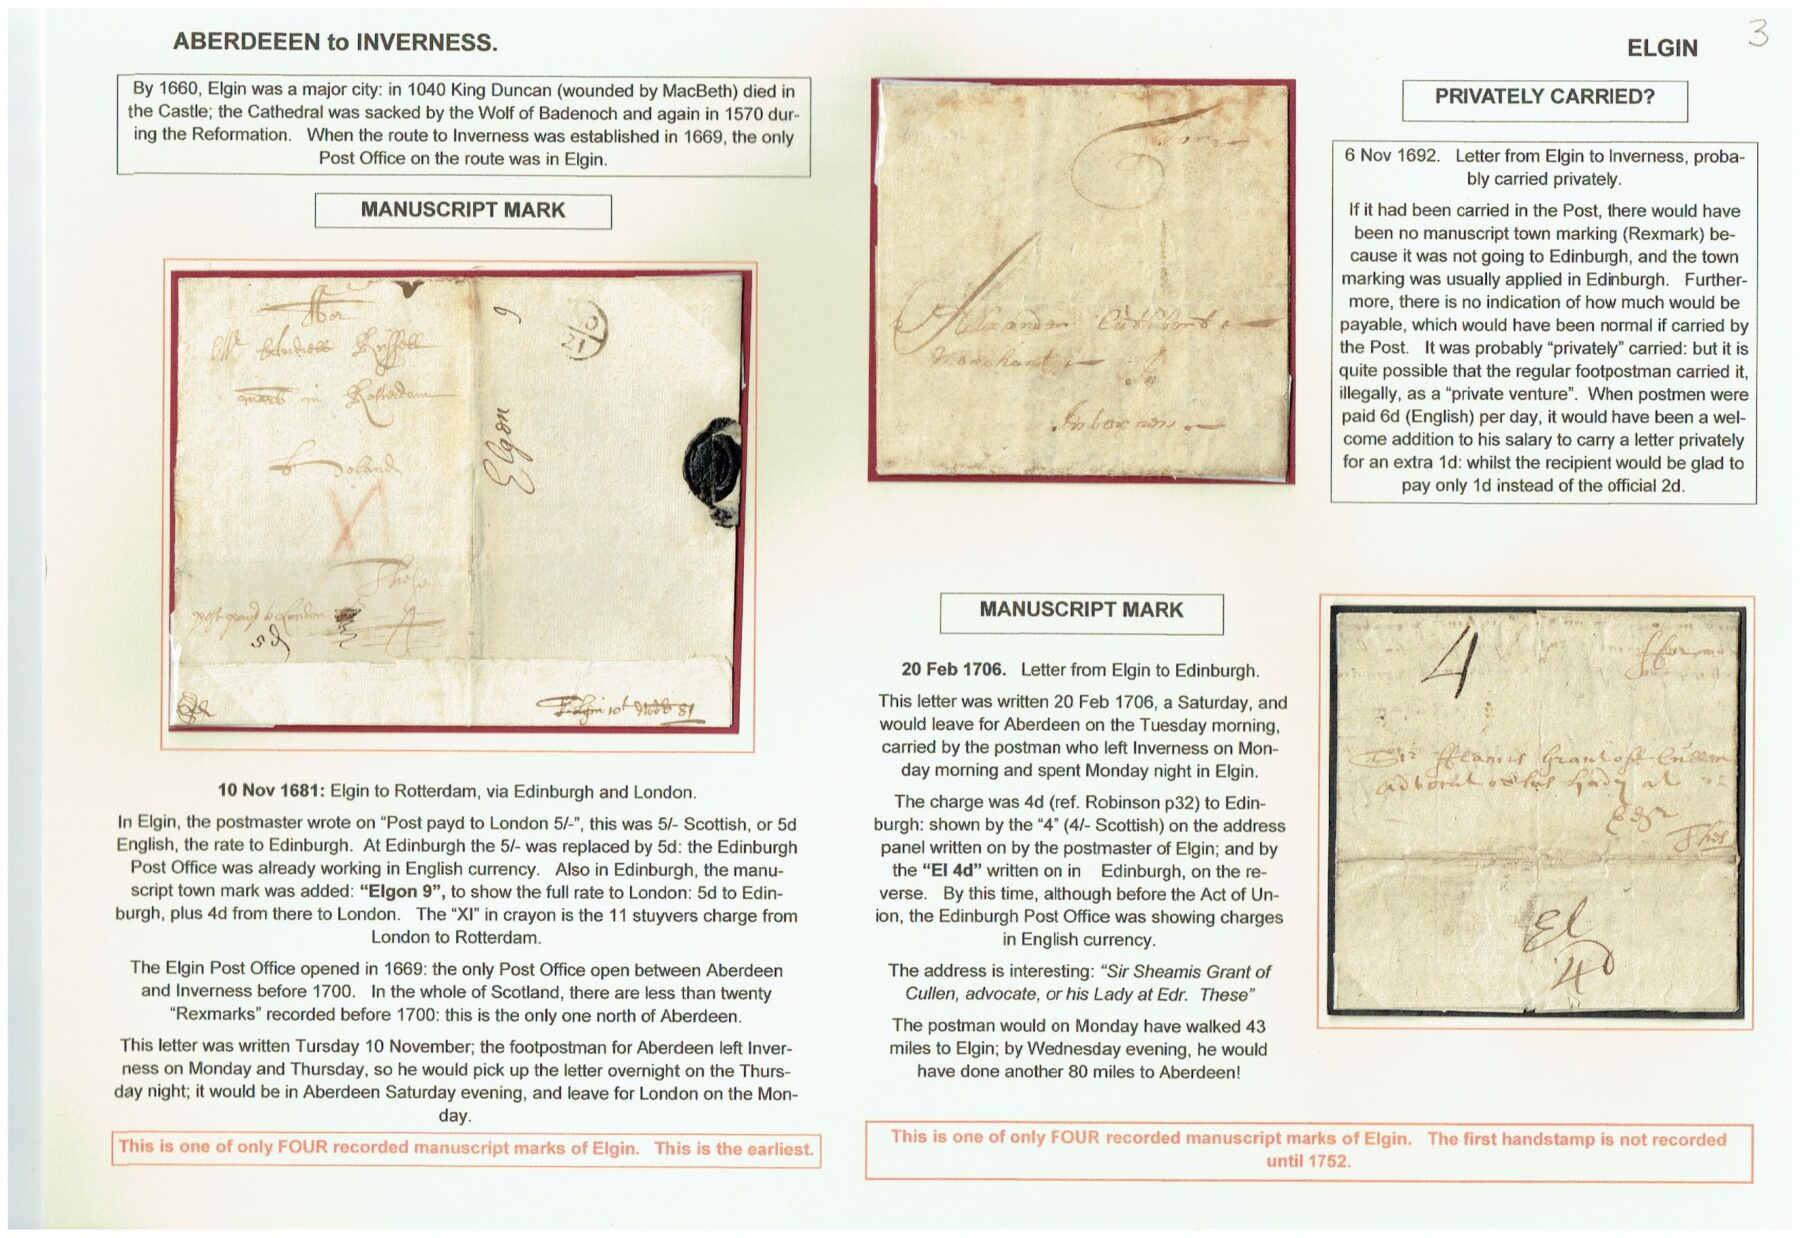 ABERDEEEN to INVERNESS.
ELGIN
3
By 1660, Elgin was a major city: in 1040 King Duncan (wounded by MacBeth) died in
the Castle; the Cathedral was sacked by the Wolf of Badenoch and again in 1570 dur-
ing the Reformation. When the route to Inverness was established in 1669, the only
Post Office on the route was in Elgin.
MANUSCRIPT MARK
For
Russell
in Rotterdam
Holand
XI
Elgon 9
21
These
post payd to London
5d
Elgin 10t 81
10 Nov 1681: Elgin to Rotterdam, via Edinburgh and London.
In Elgin, the postmaster wrote on “Post payd to London 5/-”, this was 5/- Scottish, or 5d
English, the rate to Edinburgh. At Edinburgh the 5/- was replaced by 5d: the Edinburgh
Post Office was already working in English currency. Also in Edinburgh, the manu-
script town mark was added: “Elgon 9”, to show the full rate to London: 5d to Edin-
burgh, plus 4d from there to London. The “XI” in crayon is the 11 stuyvers charge from
London to Rotterdam.
The Elgin Post Office opened in 1669: the only Post Office open between Aberdeen
and Inverness before 1700. In the whole of Scotland, there are less than twenty
“Rexmarks” recorded before 1700: this is the only one north of Aberdeen.
This letter was written Tursday 10 November; the footpostman for Aberdeen left Inver-
ness on Monday and Thursday, so he would pick up the letter overnight on the Thurs-
day night; it would be in Aberdeen Saturday evening, and leave for London on the Mon-
day.
This is one of only FOUR recorded manuscript marks of Elgin. This is the earliest.
For
Alexander
Merchant
In
PRIVATELY CARRIED?
6 Nov 1692. Letter from Elgin to Inverness, proba-
bly carried privately.
If it had been carried in the Post, there would have
been no manuscript town marking (Rexmark) be-
cause it was not going to Edinburgh, and the town
marking was usually applied in Edinburgh. Further-
more, there is no indication of how much would be
payable, which would have been normal if carried by
the Post. It was probably “privately” carried: but it is
quite possible that the regular footpostman carried it,
illegally, as a “private venture”. When postmen were
paid 6d (English) per day, it would have been a wel-
come addition to his salary to carry a letter privately
for an extra 1d: whilst the recipient would be glad to
pay only 1d instead of the official 2d.
MANUSCRIPT MARK
20 Feb 1706. Letter from Elgin to Edinburgh.
This letter was written 20 Feb 1706, a Saturday, and
would leave for Aberdeen on the Tuesday morning,
carried by the postman who left Inverness on Mon-
day morning and spent Monday night in Elgin.
The charge was 4d (ref. Robinson p32) to Edin-
burgh: shown by the “4” (4/- Scottish) on the address
panel written on by the postmaster of Elgin; and by
the “El 4d” written on in Edinburgh, on the re-
verse. By this time, although before the Act of Un-
ion, the Edinburgh Post Office was showing charges
in English currency.
The address is interesting: “Sir Sheamis Grant of
Cullen, advocate, or his Lady at Edr. These”
The postman would on Monday have walked 43
miles to Elgin; by Wednesday evening, he would
have done another 80 miles to Aberdeen!
4
Sir Grant off Cullen
Advocat or his Lady at
Edr
Thes
El
4d
This is one of only FOUR recorded manuscript marks of Elgin. The first handstamp is not recorded
until 1752.